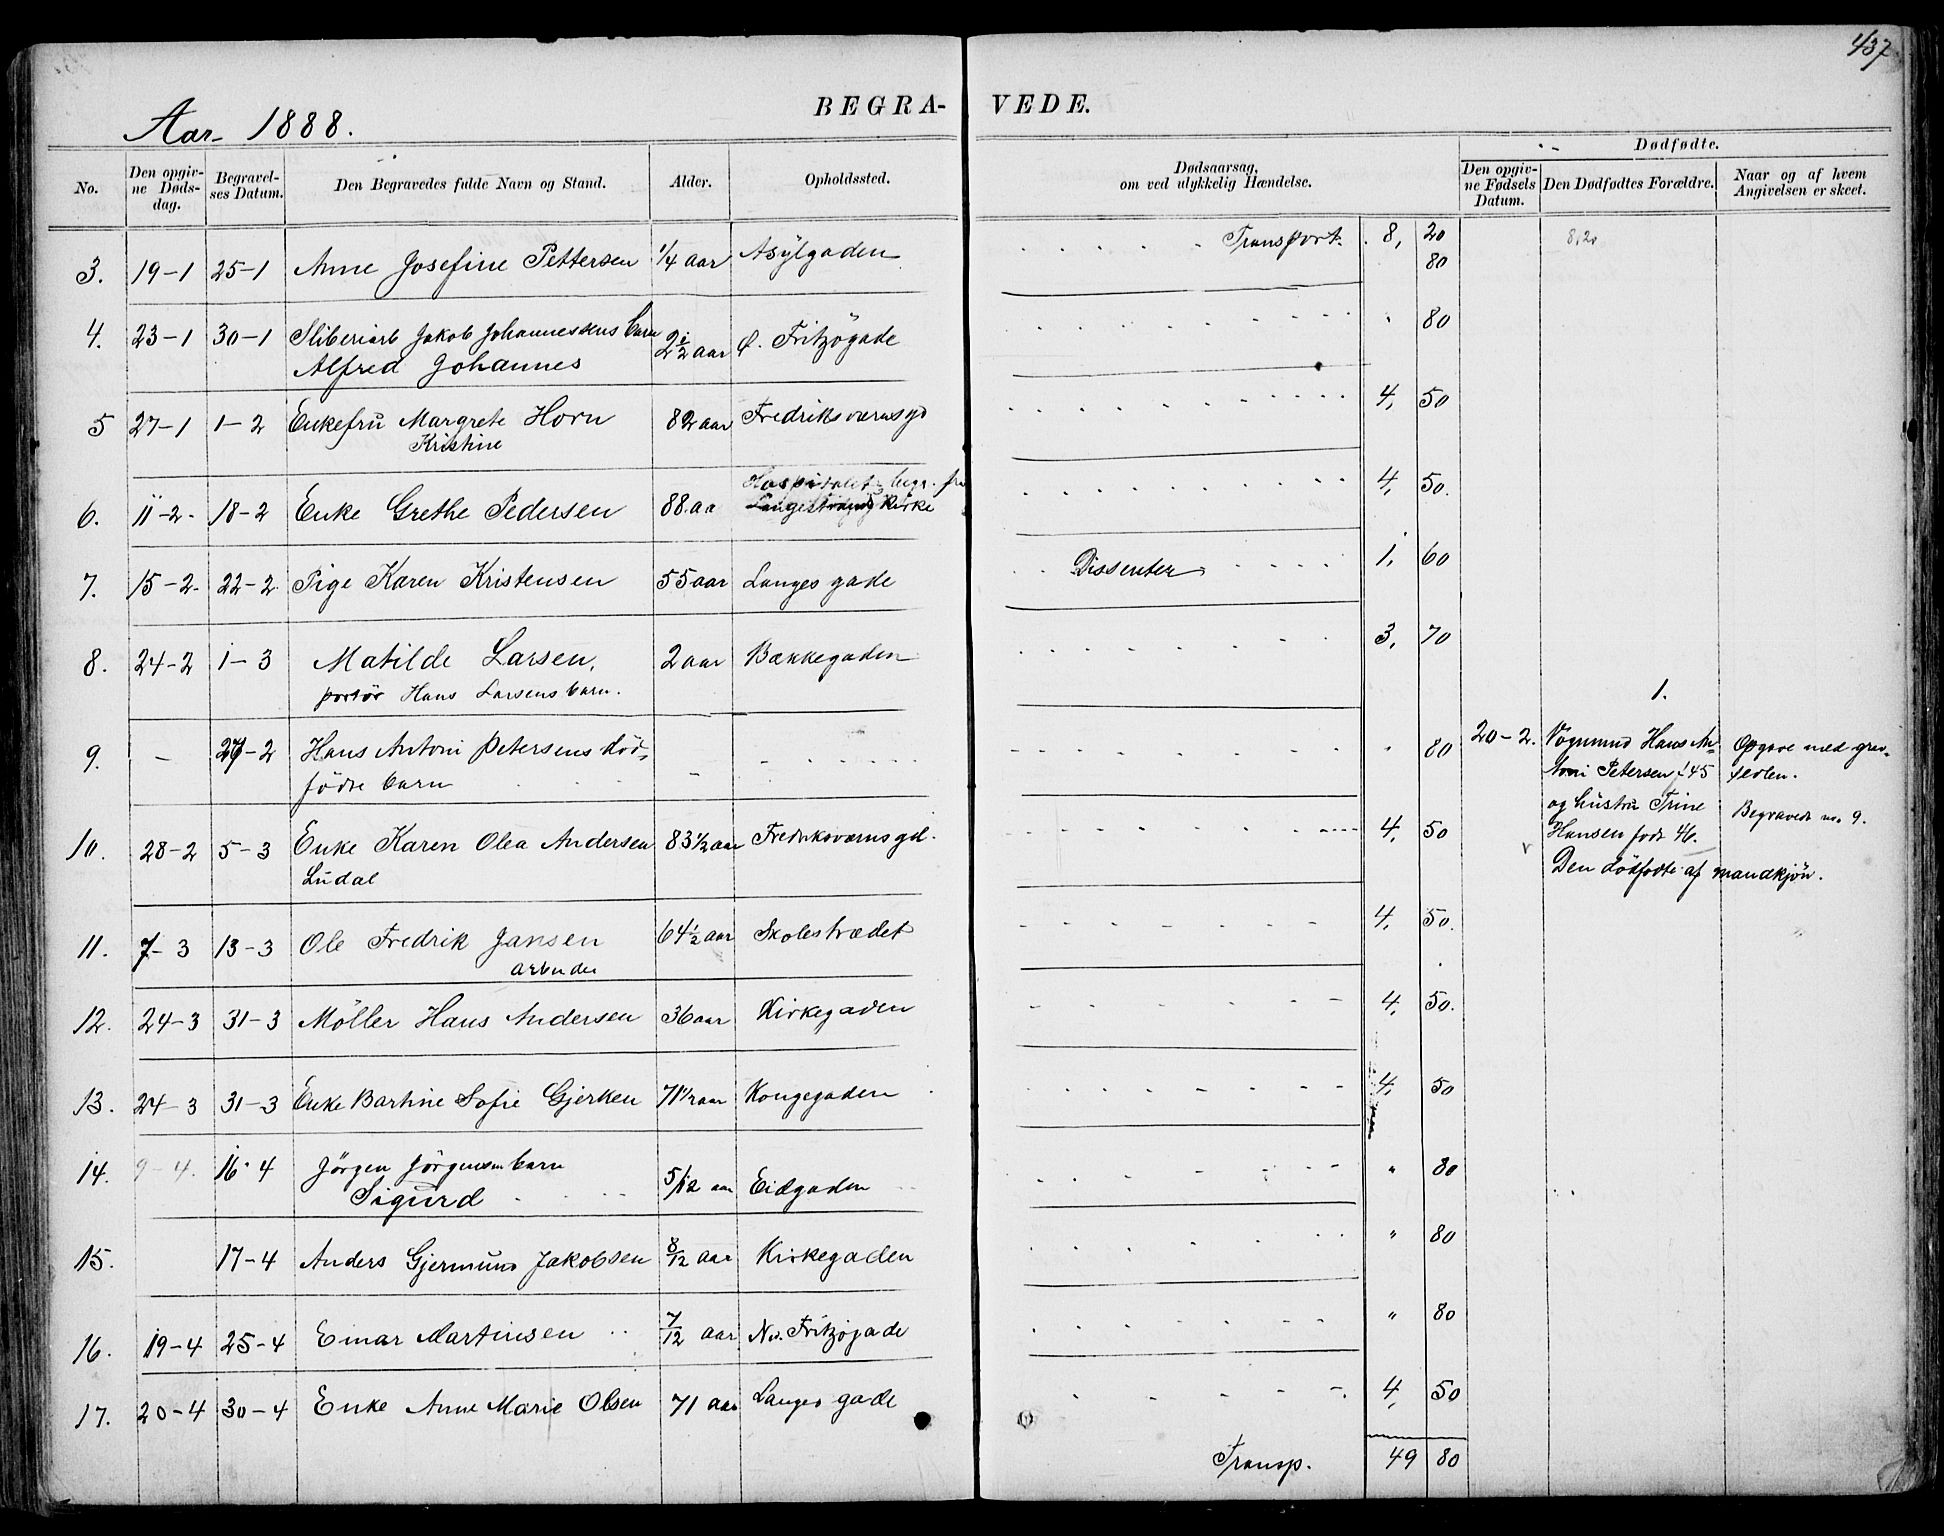 437
BEGRA- VEDE.
Aar 1888.
No.
Den opgiv-
ne Døds-
dag.
Begravel-
ses Datum.
Den Begravedes fulde Navn og Stand.
Alder.
Opholdssted.
Dødsaarsag,
om ved ulykkelig Hændelse.
Dødfødte.
Den opgiv-
ne Fødsels
Datum.
Den Dødfødtes Forældre.
Naar og af hvem
Angivelsen er skeet.
Transport. 8, 20
8,20
3. 19-1 25-1 Anne Josefine Pettersen 1/4 aar Asylgaden 80
4. 23-1 30-1 Sliberiarb Jakob Johannessens barn 2 1/2 aar Ø. Fritzögade " 80
Alfred Johannes
5 27-1 1-2 Enkefru Margrete Horn 82 aar Fredriksværnsgd 4, 50
Kristine
Hospitalet, begr. fra
6. 11-2- 18-2 Enke Grethe Pedersen 88 aa Langestrands Kirke 4, 50.
7. 15-2. 22-2. Pige Karen Kristensen 55 aar Langes gade Dissenter 1, 60
8. 24-2 1-3 Matilde Larsen, 2 aar Bækkegaden 3, 70
portør Hans Larsens barn.
1.
9. - 27-2 Hans Antoni Petersens död- - " 80 20-2. Vognmnd Hans An-
födte barn
toni Petersen f. 45
og hustru Trine
Hansen födt 46.
Den dödfödte af mandkjön.
Opgave med grav-
sedlen.
Begravede no. 9.
10. 28-2 5-3 Enke Karen Olea Andersen 83 1/2 aar Fredriksværnsgd. 4, 50
Ludal
11. 7-3 13-3 Ole Fredrik Jansen 64 1/2 aar Skolestrædet 4, 50.
arbeider
12. 24-3 31-3 Möller Hans Andersen 36 aar Kirkegaden 4, 50.
13. 24-3 31-3 Enke Bartine Sofie Gjerken 71 1/2 aar Kongegaden 4, 50
14. 9-4. 16-4 Jörgen Jörgensen barn 5/12 aar Eidgaden " 80
Sigurd
15. 17-4 Anders Gjermund Jakobsen 8/12 aar Kirkegaden " 80
16. 19-4 25-4 Einar Martinsen 7/12 aar N. Fritzøgade " 80
17. 20-4 30-4 Enke Anne Marie Olsen 71 aar Langes gade 4, 50
Transp. 49 80